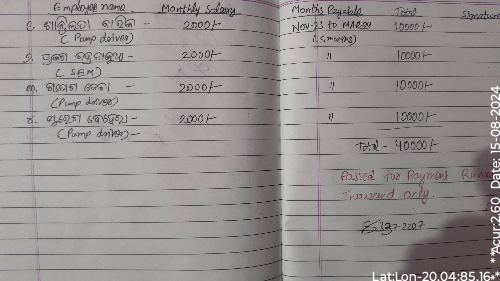 Employee name Monthly Salary Months Payable Total Signature
୧. ଶାନ୍ତିଲତା ବାରିକ - 2000/- Nov-23 to MAR24 10000/-
(Pump driver) (5 months)
2000/- " 10000/-
(SEM)
୩. ଗଣେଶ ଜେନା - 2000/- " 10000/-
(Pump driver)
୪. ସୁରେଶ ବେହେରା - 2000/- " 10000/-
(Pump driver) -
Total - 40000/-
Passed for Payment
Thousand only.
**Acur:2.60 Date: 15-08-2024
Lat:Lon-20.04:85.16**